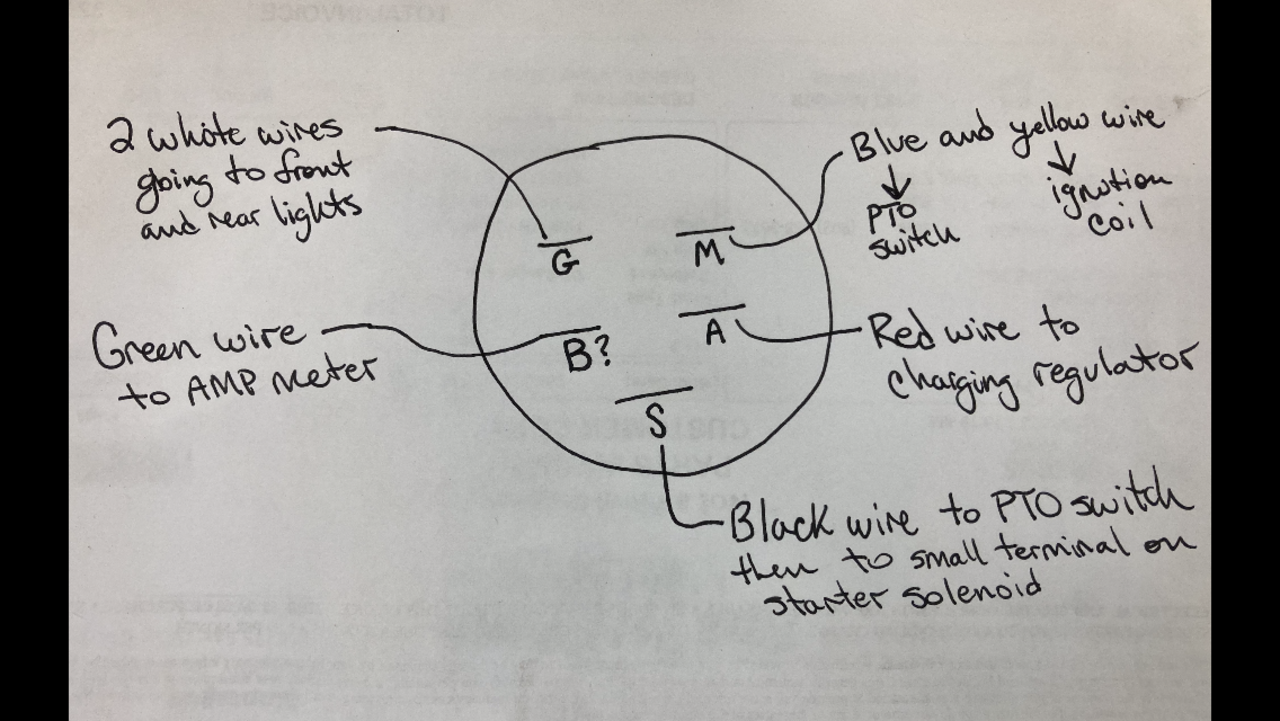 2 white wires
going to front
and rear lights
Blue and yellow wire
PTO
switch
ignition
coil
G
M
Green wire
to AMP meter
B?
A
Red wire to
charging regulator
S
Black wire to PTO switch
then to small terminal on
starter solenoid
TOTAL INVOICE